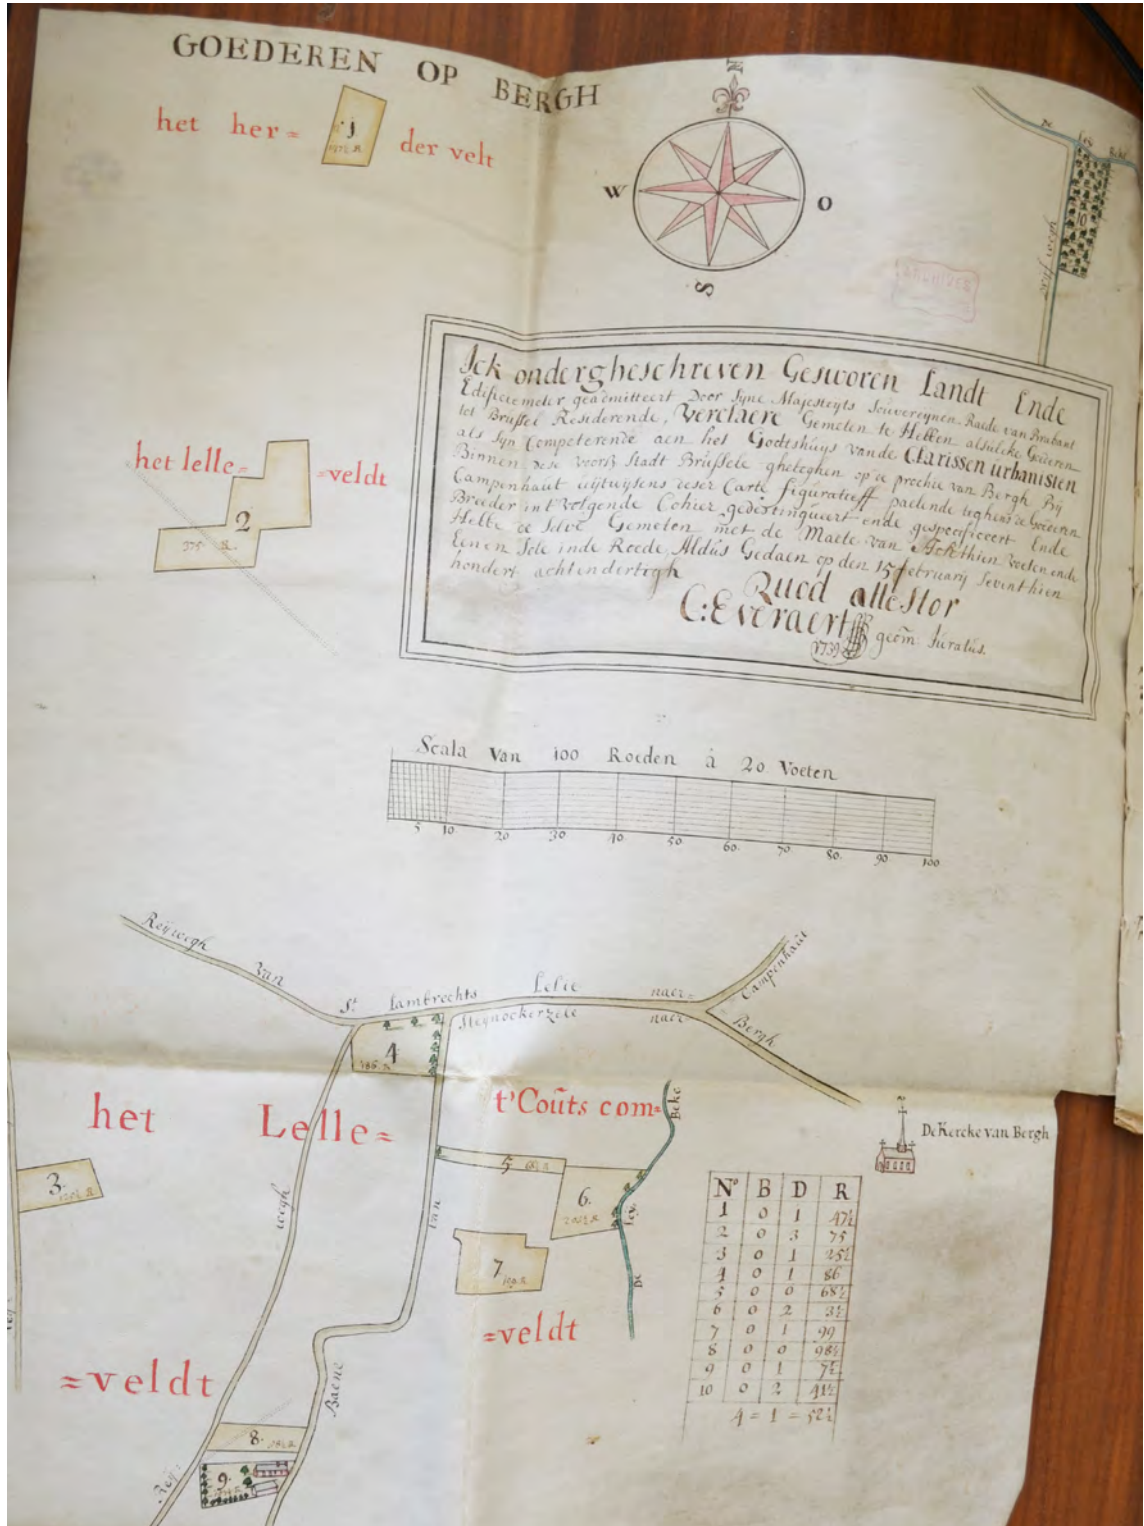 GOEDEREN OP BERGH
N
W
O
S
het her=
1
147½ R
der velt
De
Beke
10
ARCHIVES
Ick ondergheschreven Gesworen Landt Ende
Edificiemeter geadmitteert Door Syne Majesteyts Souvereynen Raede van Brabant
tot Brussel Residerende, Verclaere Gemeten te Hebben alsulcke Goederen
als syn Competerende aen het Godtshuys vande Clarissen urbanisten
Binnen dese voors. Stadt Brussele gheleghen op de prochie van Bergh Bij
Campenhaut uijtwysens deser Carte figuratieff paelende teghens de Goederen
Breeder int volgende Cohier gedistingueert ende gespecificeert Ende
Hebbe de selve Gemeten met de Maete van Achthien voeten ende
Eenen Sele inde Roede, Aldus Gedaen op den 15 februarij Seventhien
hondert achtendertigh
Quod attestor
C: Everaert
geom. Juratus.
1739
het lelle=
=veldt
2
375 R
Scala Van 100 Roeden à 20 Voeten
5 10 20 30 40 50 60 70 80 90 100
Reijwegh
Van
St. Lambrechts Lelie
naer=
Campenhaut
Steynockerzele
naer
Bergh
4
186 R
het Lelle=
t'Couts com=
Beke
De Kercke van Bergh
3.
125½ R
wegh
Van
5
68½ R
6.
203½ R
Leij.
7
199 R
De
=veldt
=veldt
Baene
8.
98½ R
9.
Reij
N° B D R
1 0 1 47½
2 0 3 75
3 0 1 25½
4 0 1 86
5 0 0 68½
6 0 2 3½
7 0 1 99
8 0 0 98½
9 0 1 7½
10 0 2 41½
4 = 1 = 52½